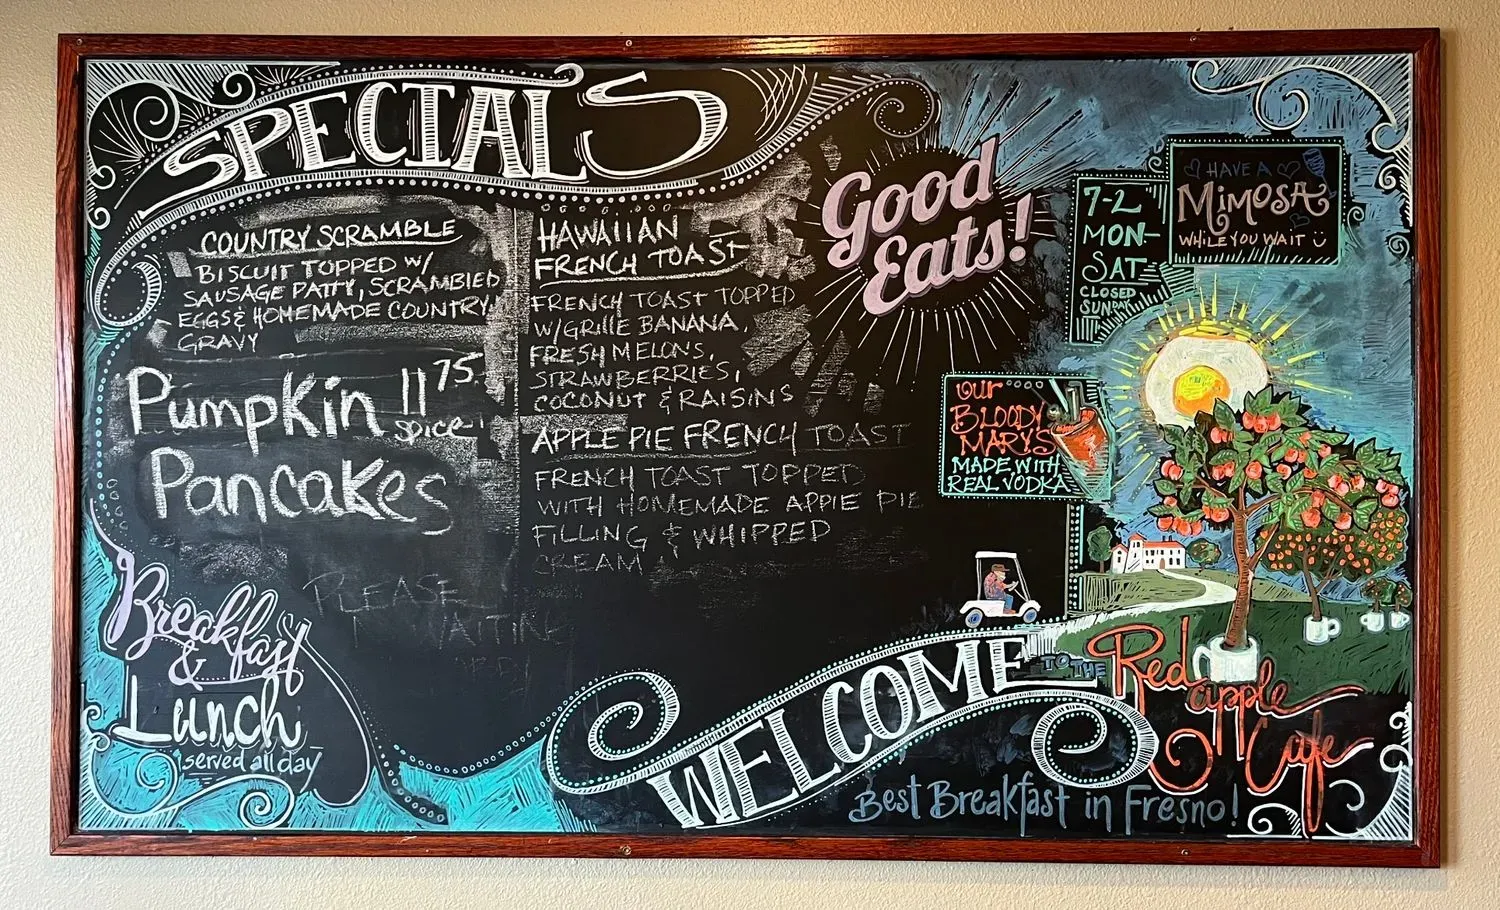 SPECIALS
COUNTRY SCRAMBLE
BISCUIT TOPPED W/
SAUSAGE PATTY, SCRAMBLED
EGGS & HOMEMADE COUNTRY
GRAVY
Pumpkin 11 75
spice
Pancakes
HAWAIIAN
FRENCH TOAST
FRENCH TOAST TOPPED
W/GRILLE BANANA,
FRESH MELONS,
STRAWBERRIES,
COCONUT & RAISINS
APPLE PIE FRENCH TOAST
FRENCH TOAST TOPPED
WITH HOMEMADE APPIE PIE
FILLING & WHIPPED
CREAM
PLEASE
WAITING
Good
Eats!
7-2
MON-
SAT
CLOSED
SUNDAY
HAVE A
MIMOSA
WHILE YOU WAIT
our
BLOODY
MARY'S
MADE WITH
REAL VODKA
Breakfast
&
Lunch
served all day
WELCOME TO THE
Red
apple
Cafe
Best Breakfast in Fresno!